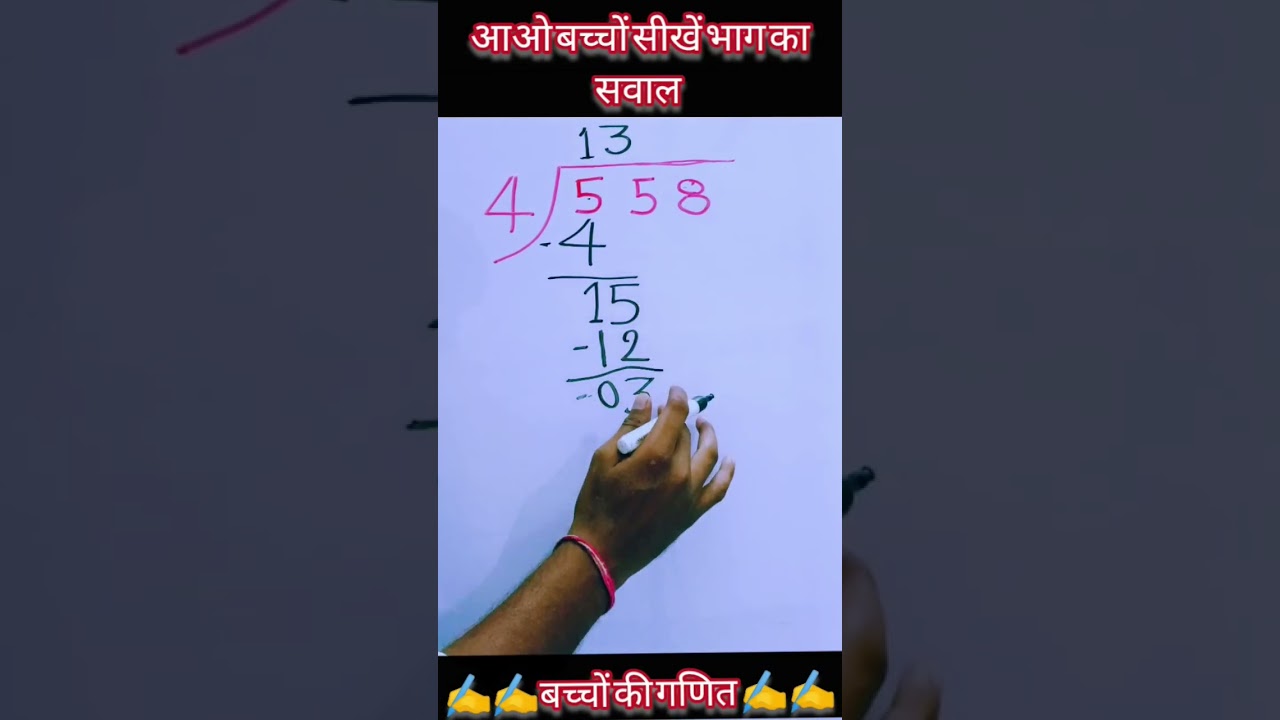 आओ बच्चों सीखें भाग का
सवाल
13
4 558
-4
15
-12
-03
बच्चों की गणित